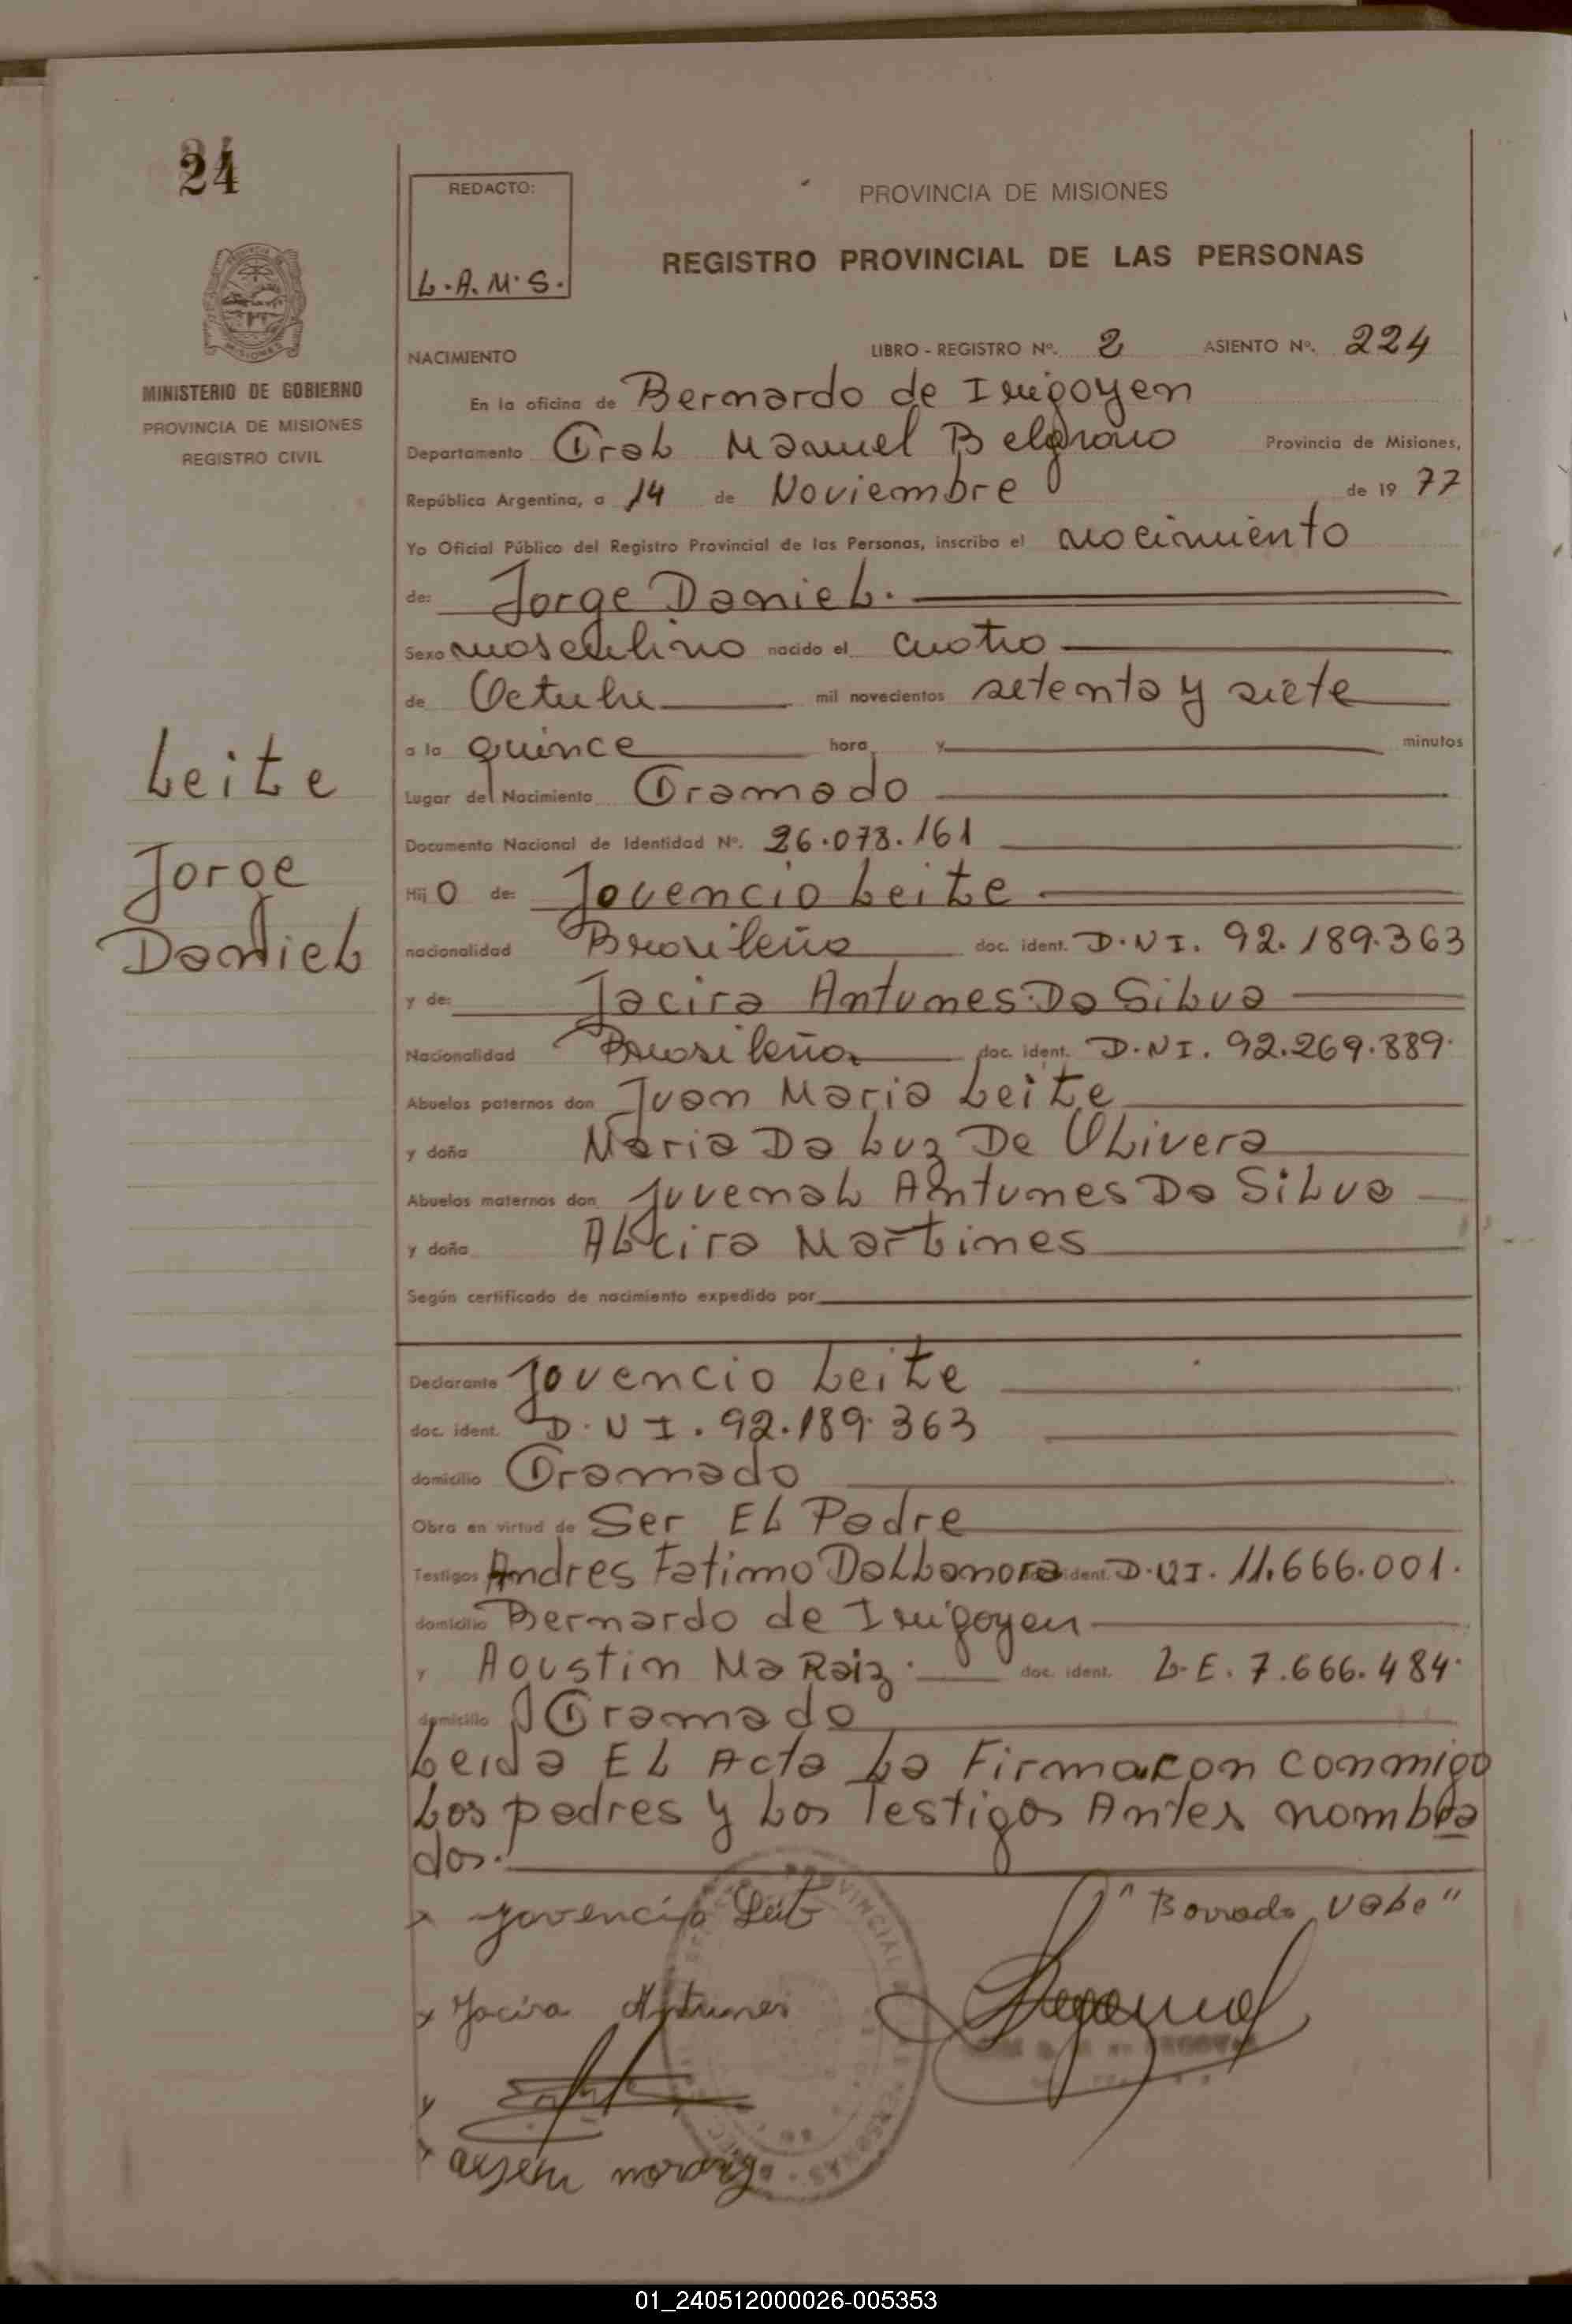 24
REDACTO:
L.A.M.S.
PROVINCIA DE MISIONES
REGISTRO PROVINCIAL DE LAS PERSONAS
MINISTERIO DE GOBIERNO
PROVINCIA DE MISIONES
REGISTRO CIVIL
Leite
Jorge
Daniel
NACIMIENTO LIBRO - REGISTRO Nº. 2 ASIENTO Nº. 224
En la oficina de Bernardo de Irigoyen
Departamento Gral Manuel Belgrano Provincia de Misiones,
República Argentina, a 14 de Noviembre de 19 77
Yo Oficial Público del Registro Provincial de las Personas, inscribo el nacimiento
de: Jorge Daniel.
Sexo masculino nacido el cuatro
de Octubre mil novecientos setenta y siete
a la quince hora y minutos
Lugar del Nacimiento Gramado
Documento Nacional de Identidad Nº. 26.078.161
Hij o de: Jovencio Leite
nacionalidad Brasileña doc. ident. D.N I. 92.189.363
y de: Jacira Antunes Da Silva
Nacionalidad Brasileña doc. ident. D.N I. 92.269.889.
Abuelos paternos don Juan Maria Leite
y doña Maria Da Luz De Olivera
Abuelos maternos don Juvenal Antunes Da Silva
y doña Alcira Martines
Según certificado de nacimiento expedido por
Declarante Jovencio Leite
doc. ident. D.N I. 92.189.363
domicilio Gramado
Obra en virtud de Ser El Padre
Testigos Andres Fatimo Dallanora ident. D.N I. 11.666.001.
domicilio Bernardo de Irigoyen
y Agustin Ma Raiz. doc. ident. L.E. 7.666.484.
domicilio Gramado
Leida El Acta La Firmaron conmigo
Los padres y Los Testigos Antes nombra
dos.
x Jovencio Leite
"Borrado Vale"
x Jacira Antunes
01_240512000026-005353